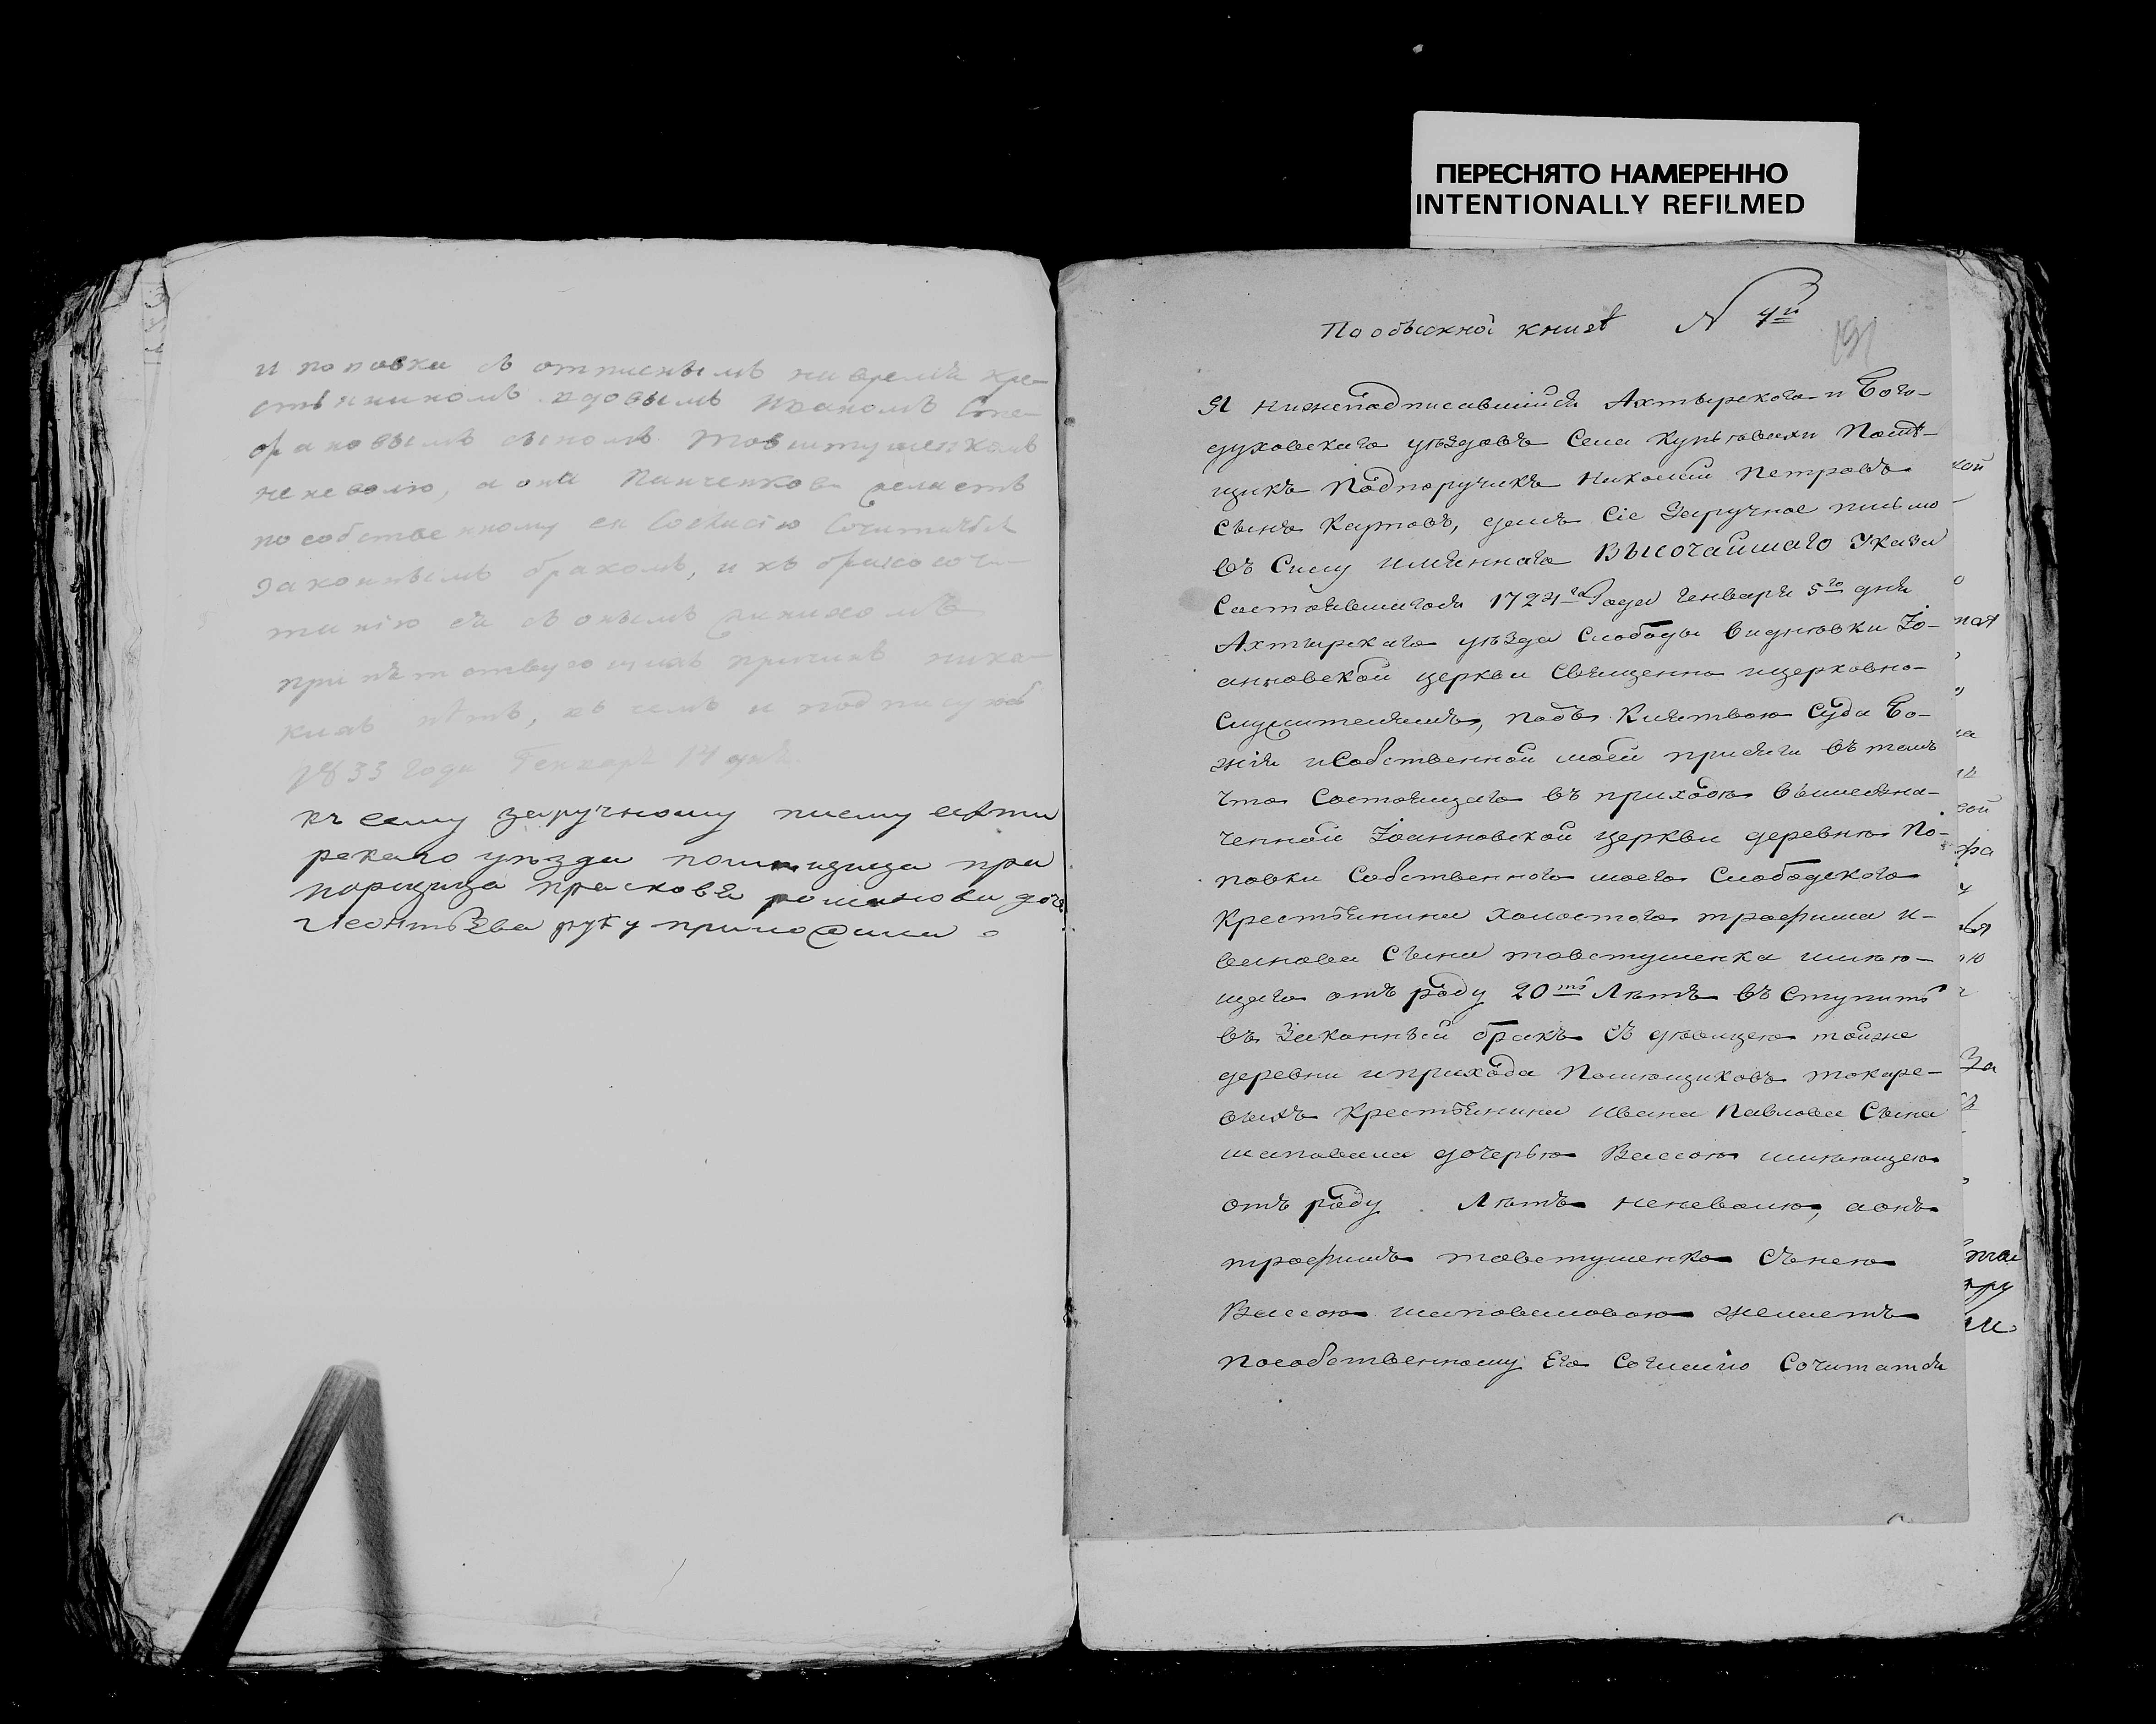 ПЕРЕСНЯТО НАМЕРЕННО
INTENTIONALLY REFILMED
и поповки съ отпискымъ на время кре-
стьяниномъ вдовымъ Иваномъ Сте-
фановымъ сыномъ Товштушенкомъ
неневолю, а она Панченкова желаетъ
по собственному ея Согласію Сочитатся
законнымъ бракомъ, и къ бракосоче-
танію ея съ онымъ женихомъ
припятствующихъ причинъ ника-
кихъ нѣтъ, въ чемъ и подписуюсь
1833 года Генваря 14 дня.
къ сему заручному писму ахти
рскаго уѣзда помѣщица пра
порщица прасковя романова доч
Леонтьева руку приложила
По обыскной книгѣ N 4й
191
Я нижеподписавшійся Ахтырского и Бого-
духовскаго уѣздовъ Села Купьевахи Помѣ-
щикъ Подпоручикъ Николай Петровъ
Сынъ Картовъ, далъ Сіе Заручное письмо
въ Силу имяннаго ВЫСОЧАЙШАГО Указа
Состоявшагося 1724го Года Генваря 5го дня
Ахтырскаго уѣзда Слободы Видновки Іо-
анновской церкви Священно ицерковно-
Служителямъ, подъ Клятвою Суда Бо-
жія иСобственной моей присяги въ томъ
что Состоящаго въ приходѣ вышеозна-
ченной Іоанновской церкви деревни По-
повки Собственного моего Слободского
Крестьянина холостого трофима и-
ванова Сына товстушенка имѣю-
щаго отъ роду 20ть Лѣтъ въ Ступить
въ Законный бракъ съ дѣвицею тойже
деревни иприхода Помѣщиковъ токаре-
выхъ Крестьянина ивана Павлова Сына
шаповала дочерью Вассою имѣющею
отъ роду Лѣтъ неневолю, аонъ
трофимъ товстушенко Сънею
Вассою шаповаловою желаетъ
Пособственному Его Согласію Сочитатся